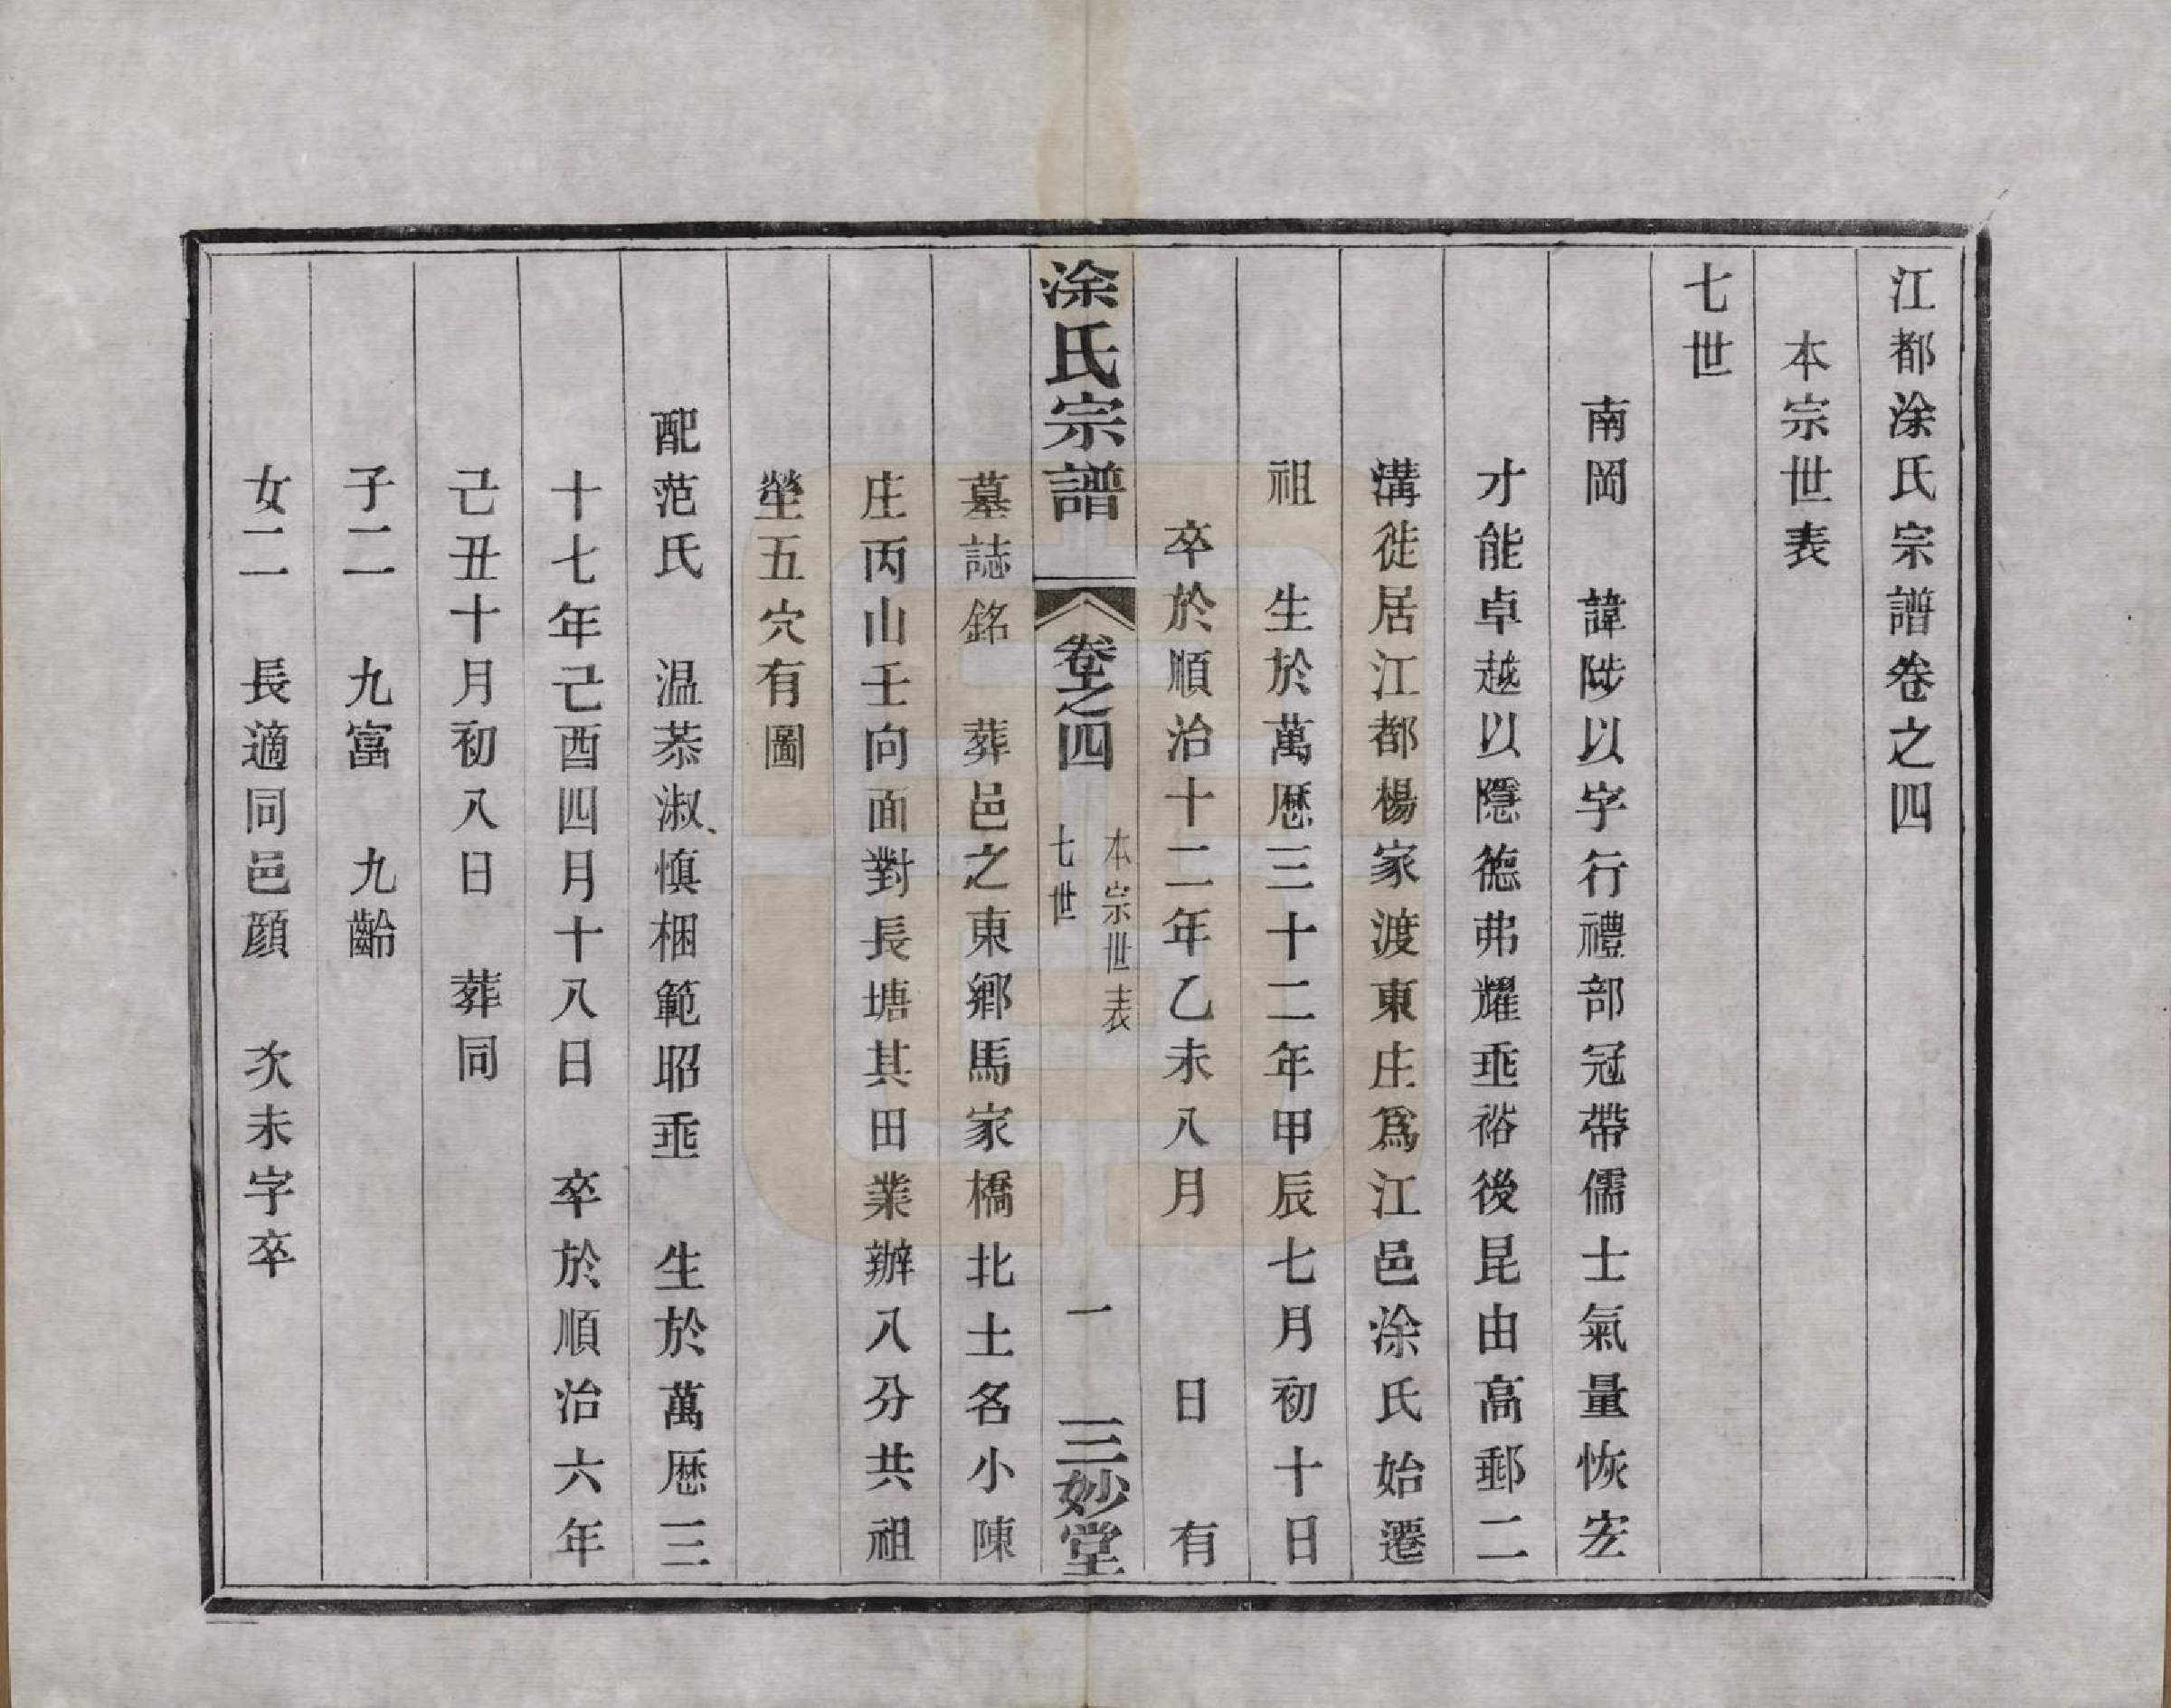 江都涂氏宗譜卷之四
本宗世表
七世
南岡　諱陟以字行禮部冠帶儒士氣量恢宏
才能卓越以隱德弗耀垂裕後昆由高郵二
溝徙居江都楊家渡東庄爲江邑涂氏始遷
祖　生於萬歷三十二年甲辰七月初十日
卒於順治十二年乙未八月　日　有
涂氏宗譜　卷之四　本宗世表　七世　一　三妙堂
墓誌銘　葬邑之東鄉馬家橋北土名小陳
庄丙山壬向面對長塘其田業辦入分共祖
塋五穴有圖
配范氏　温恭淑慎梱範昭垂　生於萬歷三
十七年己酉四月十八日　卒於順治六年
己丑十月初八日　葬同
子二　九富　九齡
女二　長適同邑顔　次未字卒